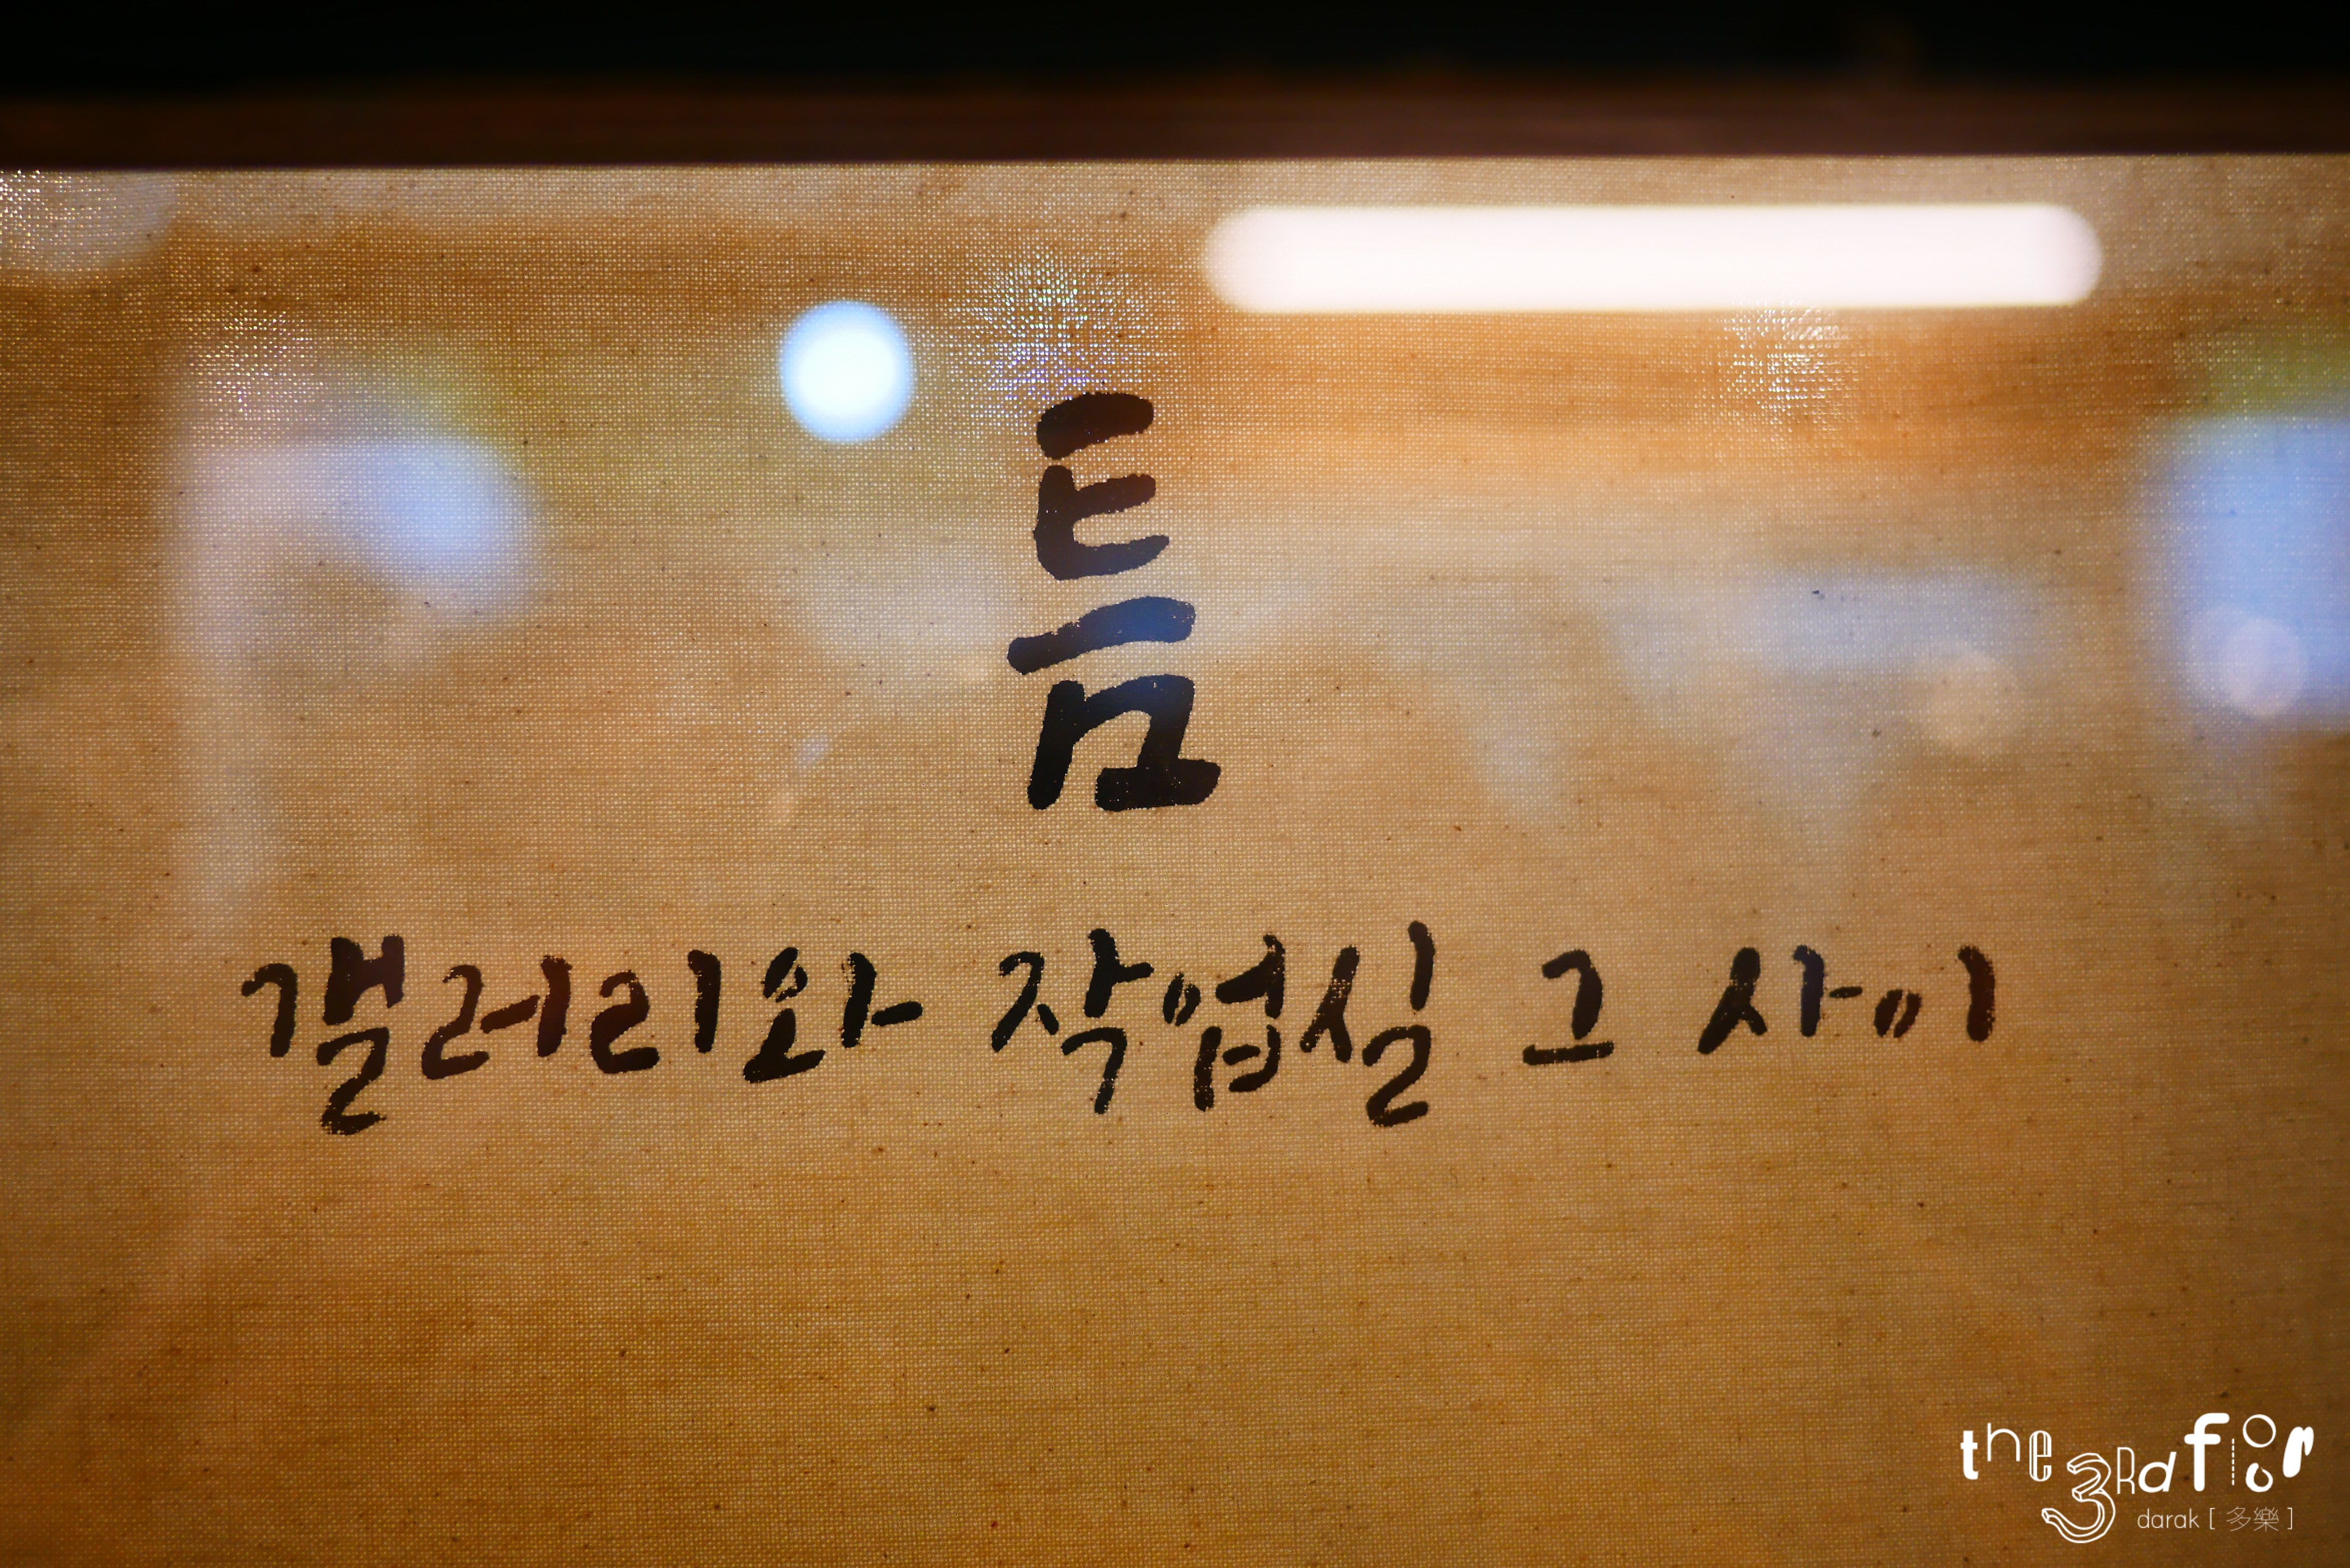 틈
갤러리와 작업실 그 사이
the 3Rd floor
darak [ 多樂 ]